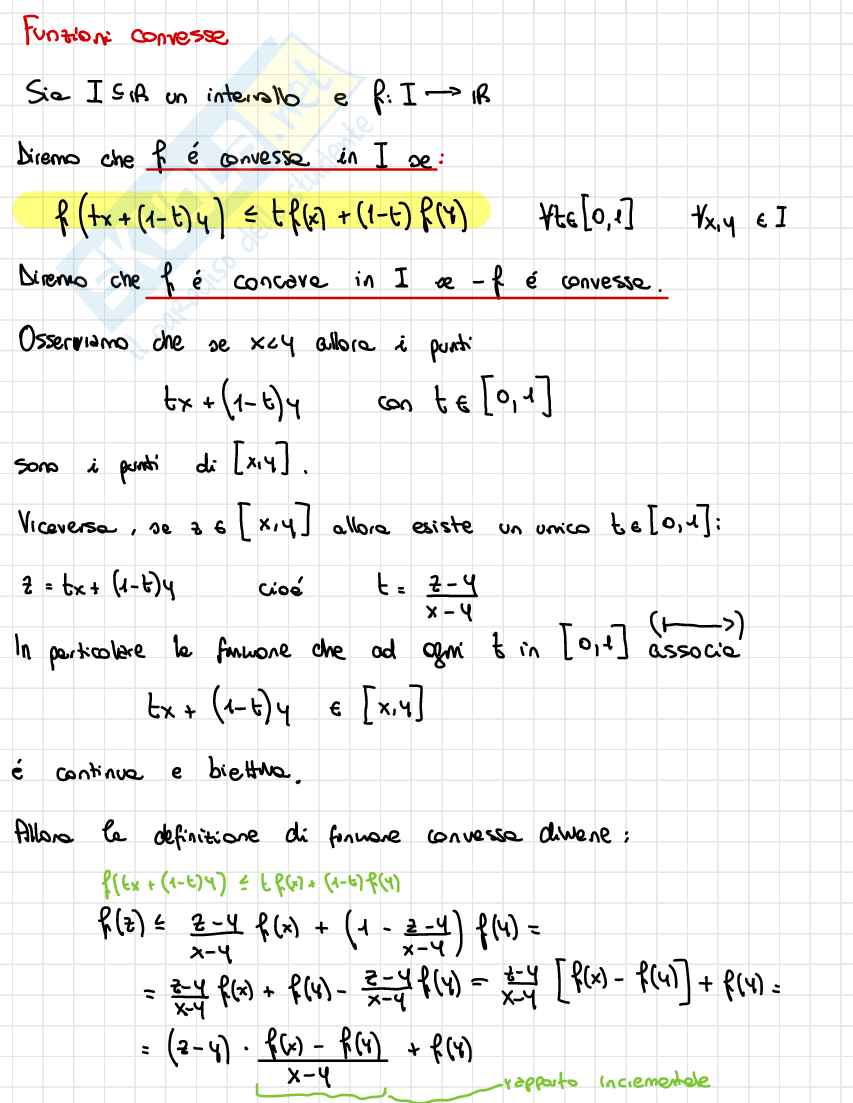 Funzioni convesse
Sia I ⊆ ℝ un intervallo e f: I → ℝ
Diremo che f é convessa in I se:
f(tx + (1-t)y) ≤ t f(x) + (1-t) f(y) ∀t∈[0,1] ∀x,y ∈ I
Diremo che f é concava in I se -f é convessa.
Osserviamo che se x<y allora i punti
tx + (1-t)y con t ∈ [0,1]
sono i punti di [x,y].
Viceversa, se z ∈ [x,y] allora esiste un unico t∈[0,1]:
z = tx + (1-t)y cioé t = (z-y)/(x-y)
In particolare la funzione che ad ogni t in [0,1] associa (⟼)
tx + (1-t)y ∈ [x,y]
é continua e biettiva.
Allora la definizione di funzione convessa diviene:
f(tx + (1-t)y) ≤ t f(x) + (1-t) f(y)
f(z) ≤ (z-y)/(x-y) f(x) + (1 - (z-y)/(x-y)) f(y) =
= (z-y)/(x-y) f(x) + f(y) - (z-y)/(x-y) f(y) = (z-y)/(x-y) [f(x) - f(y)] + f(y) =
= (z-y) · (f(x) - f(y))/(x-y) + f(y)
rapporto incrementale